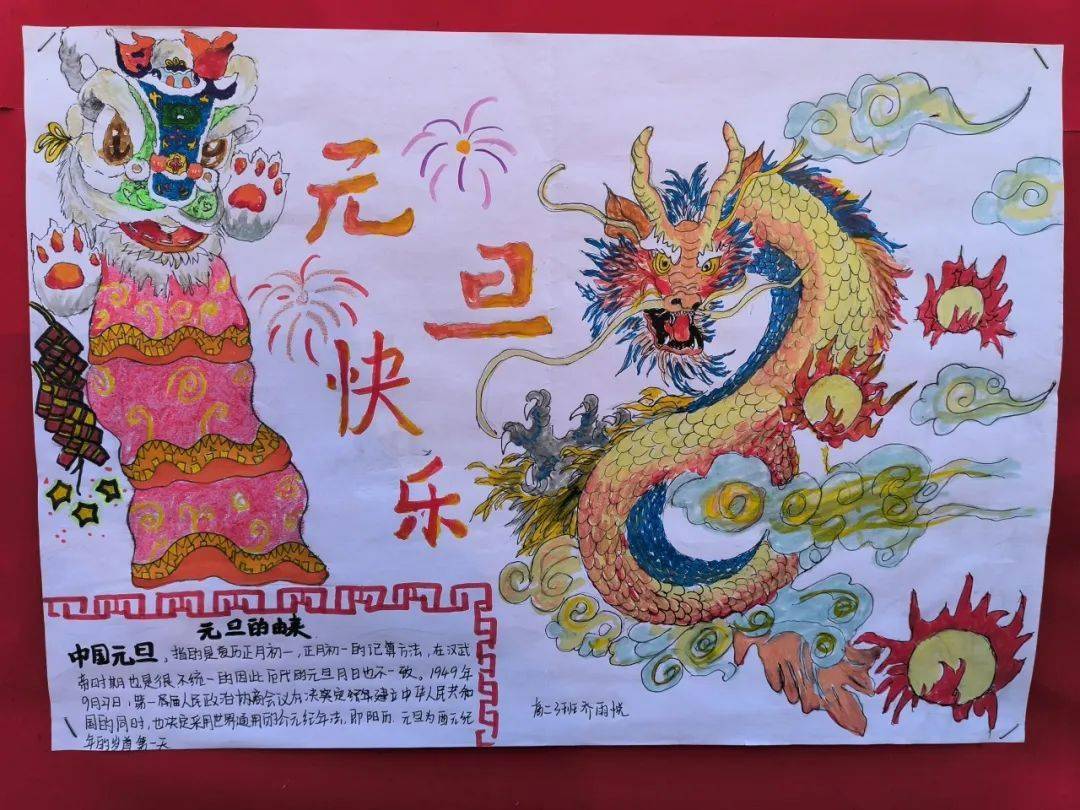 元旦
快乐
元旦的由来
中国元旦，指的是夏历正月初一，正月初一的计算方法，在汉武
帝时期也是很不统一的因此历代的元旦月日也不一致。1949年
9月27日，第一届人民政治协商会议 决定 建立中华人民共和
国的同时，也决定采用世界通用的公元纪年法，即阳历 元旦为西元纪
年的岁首第一天
高二3班齐雨悦